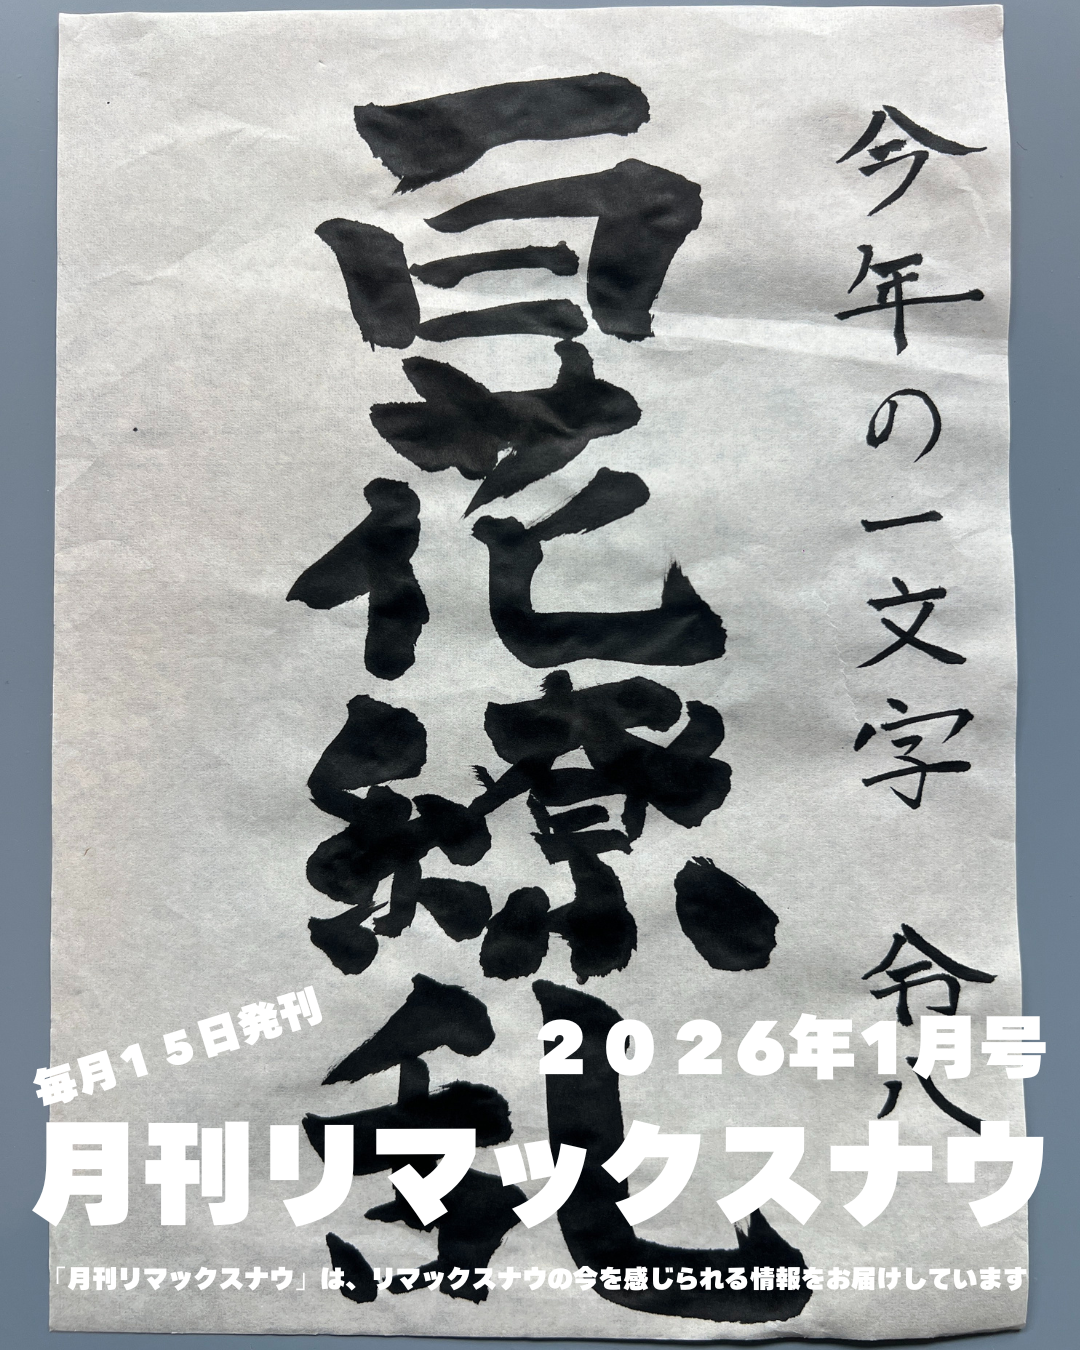 今年の一文字 令八
百花繚乱
毎月15日発刊
2026年1月号
月刊リマックスナウ
「月刊リマックスナウ」は、リマックスナウの今を感じられる情報をお届けしています